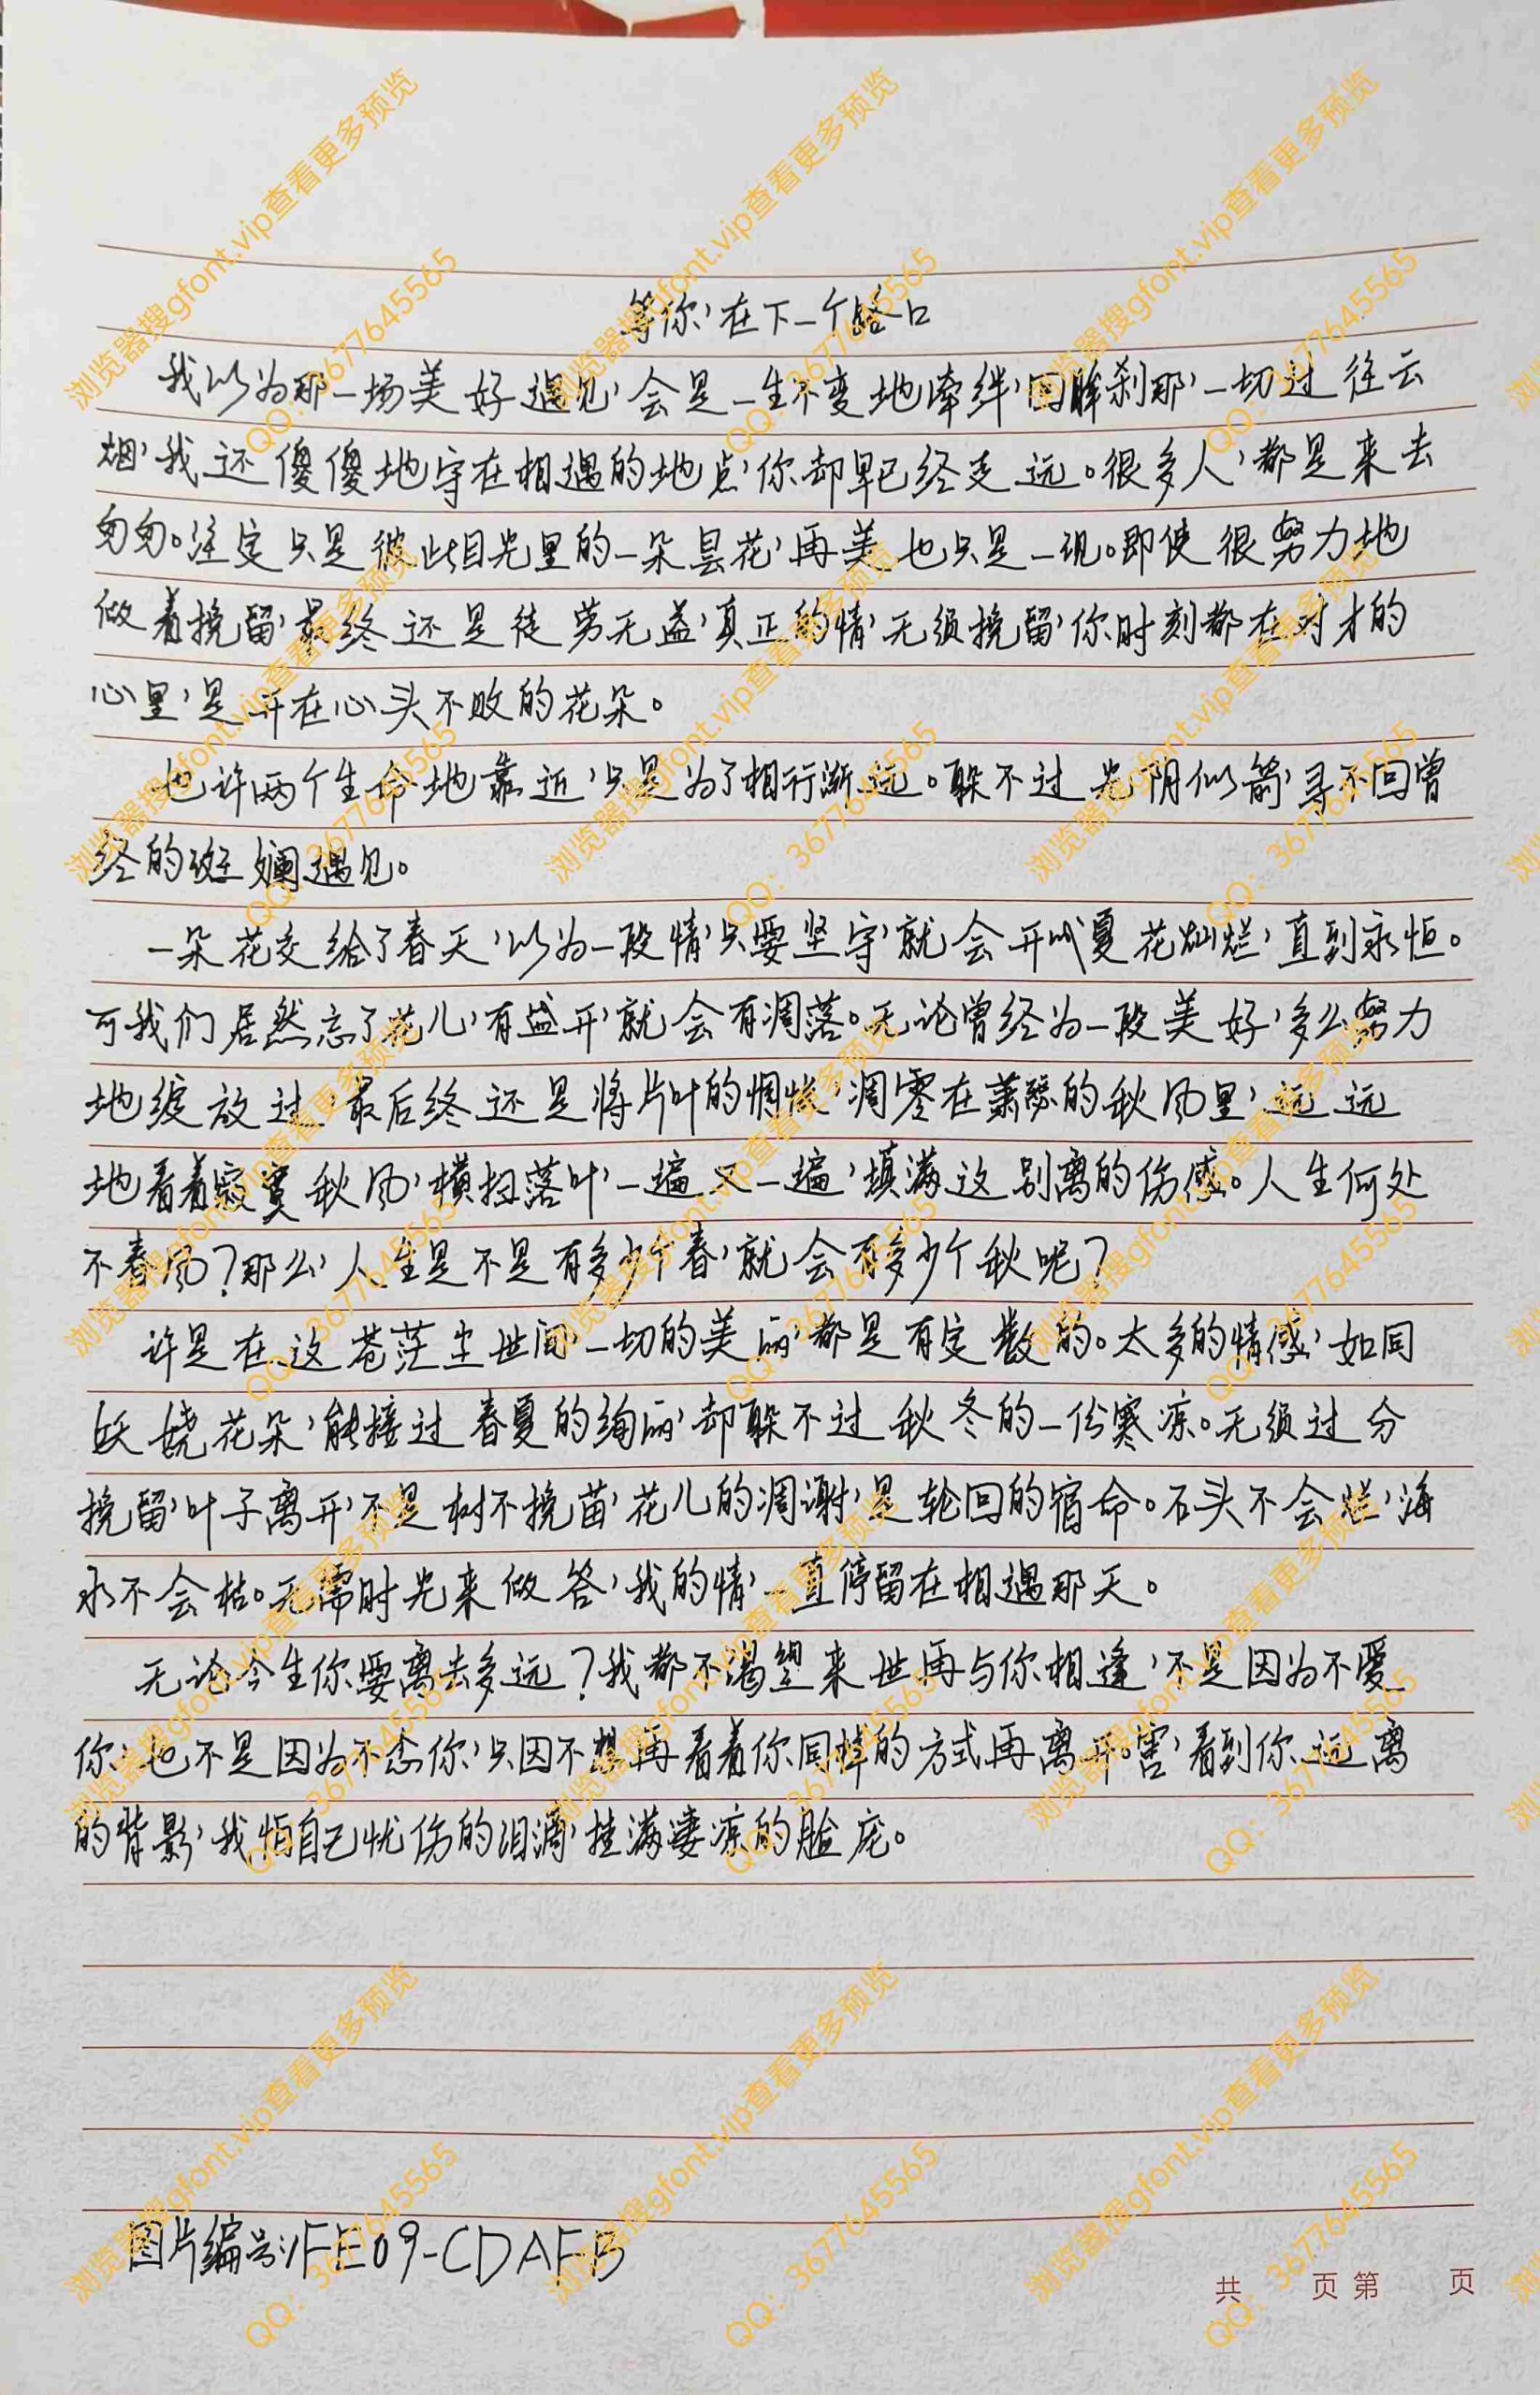 等你，在下一个路口
我以为那一场美好遇见，会是一生不变地牵绊，回眸刹那，一切过往云
烟，我还傻傻地守在相遇的地点，你却早已经走远。很多人，都是来去
匆匆。注定只是彼此目光里的一朵昙花，再美也只是一现。即使很努力地
做着挽留，最终还是徒劳无益，真正的情，无须挽留，你时刻都在对才的
心里，是开在心头不败的花朵。
也许两个生命地靠近，只是为了相行渐远。躲不过光阴似箭，寻不回曾
经的斑斓遇见。
一朵花交给了春天，以为一段情，只要坚守，就会开成夏花灿烂，直到永恒。
可我们居然忘了花儿，有盛开，就会有凋落。无论曾经为一段美好，多么努力
地绽放过，最后终还是将片叶的惆怅，凋零在萧瑟的秋风里，远远
地看着寂寞秋风，横扫落叶，一遍又一遍，填满这别离的伤感。人生何处
不春风？那么，人生是不是有多少个春，就会有多少个秋呢？
许是在这苍茫尘世间，一切的美丽，都是有定数的。太多的情感，如同
妖娆花朵，能接过春夏的绚丽，却躲不过秋冬的一份寒凉。无须过分
挽留，叶子离开，不是树不挽苗，花儿的凋谢，是轮回的宿命。石头不会烂，海
永不会枯。无需时光来做答，我的情，一直停留在相遇那天。
无论今生你要离去多远？我都不渴望来世再与你相逢，不是因为不爱
你，也不是因为不念你，只因不想再看着你同样的方式再离开。害，看到你远离
的背影，我怕自己忧伤的泪滴，挂满凄凉的脸庞。
图片编号：FE09-CDAFB
共 页 第 页
浏览器搜gfont.vip查看更多预览
QQ：3677645565